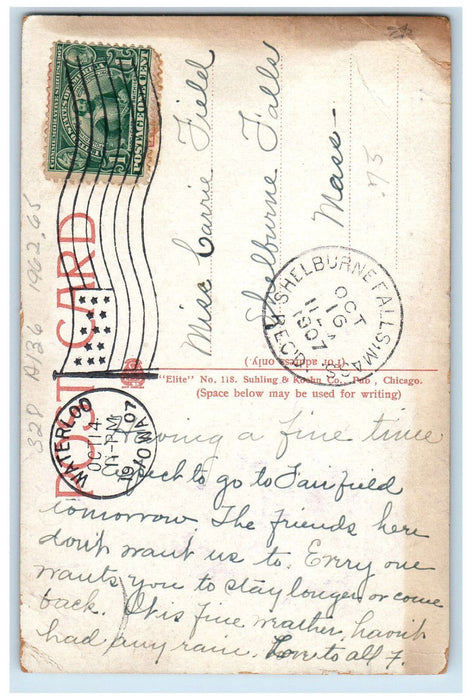 Miss Carrie Field
Shelburne Falls
Mass.
.75
POST CARD
32P A136 1962.65
POSTAGE ONE CENT
WATERLOO
OCT 14
PM
1907
IOWA
SHELBURNE FALLS MASS.
OCT
16
11-A
1907
REC'D.
(For address only.)
"Elite" No. 118. Suhling & Koehn Co., Pub., Chicago.
(Space below may be used for writing)
Having a fine time
Expect to go to Fairfield
tomorrow. The friends here
don't want us to. Every one
wants you to stay longer or come
back. It is fine weather, havn't
had any rain. Love to all F.